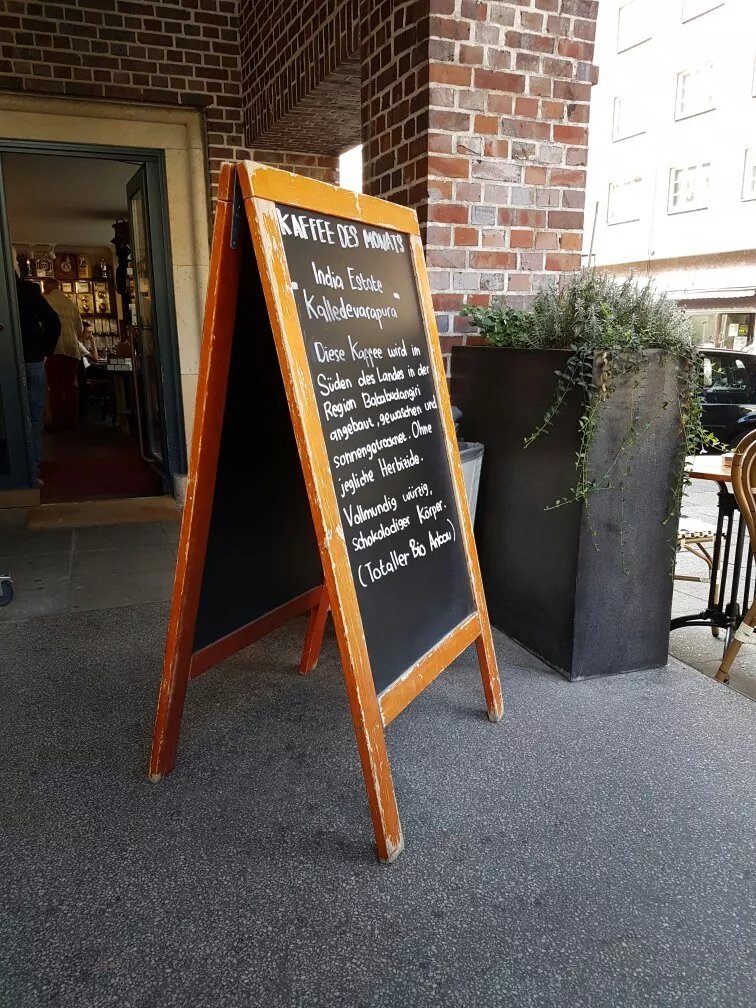 KAFFEE DES MONATS
India Estate
- Kalledevarapura -
Diese Kaffee wird im
Süden des Landes in der
Region Bababudangiri
angebaut, gewaschen und
sonnengetrocknet. Ohne
jegliche Herbizide.
Vollmundig würzig,
schokoladiger Körper.
(Totaller Bio Anbau)